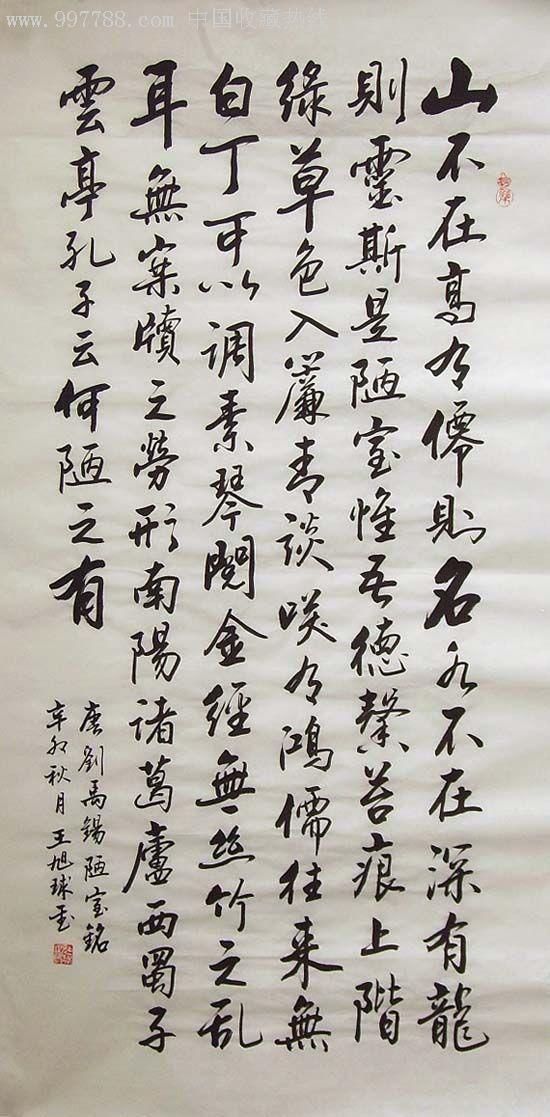 www.997788.com 中国收藏热线
山不在高有僊則名水不在深有龍
則靈斯是陋室惟吾德馨苔痕上階
綠草色入簾青談咲有鴻儒往來無
白丁可以调素琴閱金經無絲竹之乱
耳無案牘之勞形南陽諸葛廬西蜀子
雲亭孔子云何陋之有
唐劉禹錫陋室銘
辛卯秋月王旭球書